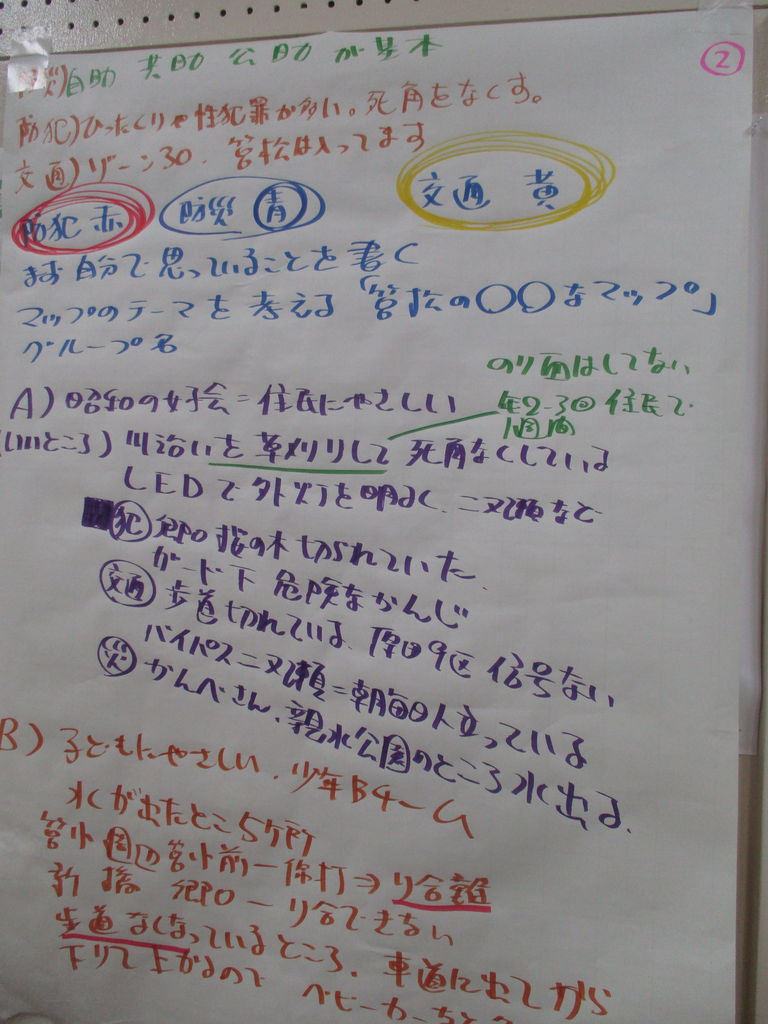 ②
防災)自助 共助 公助 が基本
防犯)ひったくりや性犯罪が多い。死角をなくす。
交通)ゾーン30、管松は入ってます
防犯 赤 防災 青 交通 黄
まず自分で思っていることを書く
マップのテーマを考える「管松の〇〇なマップ」
グループ名
のり面はしてない
年2-3回 住民で
A)昭和の好会=住民にやさしい
(いいところ)川沿いを草刈りして 死角なくしている
LEDで外灯を明るく、二又瀬など
犯 郷口 橋の木切られていた
ガード下 危険なかんじ
交通 歩道切れている、原田9区 信号ない
バイパス二又瀬=朝毎日人立っている
災 かんべさん、親水公園のところ水出る。
B)子どもにやさしい、少年Bチーム
水が出たところ5ケ所
管小周辺 管小前一条打⇒り合難
新橋 郷口ー り合できない
歩道なくなっているところ、車道に出てから
下りて上がるので ベビーカー